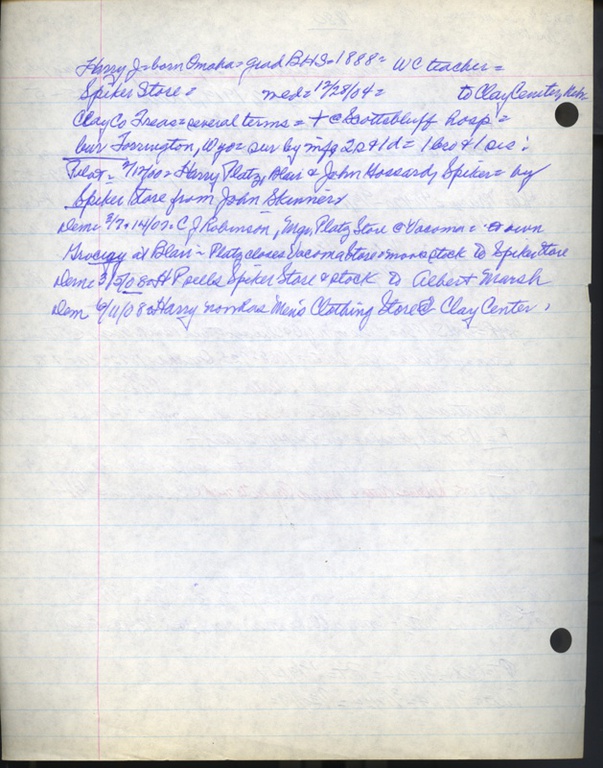 Harry J = born Omaha = grad BHS = 1888 = WC teacher =
Spiker Store = med = 12/28/04 = to Clay Center, Neb
Clay Co Treas = several terms = + @ Scottsbluff hosp =
bur Torrington, Wyo = sur by mfg 2s & 1d = 1 bro & 1 sis :
Pilot = 7/12/00 = Harry Platz, Blair & John Hossard, Spiker = buy
Spiker Store from John Skinner
Dem = 3/7 = 14/07 = C J Robinson, Mgr, Platz Store @ Vacoma = own
Grocery at Blair = Platz closes Vacoma Store = moves stock to Spiker Store
Dem = 3/5/08 = H P sells Spiker Store & stock to Albert Marsh
Dem 6/11/08 = Harry now has Men's Clothing Store @ Clay Center .